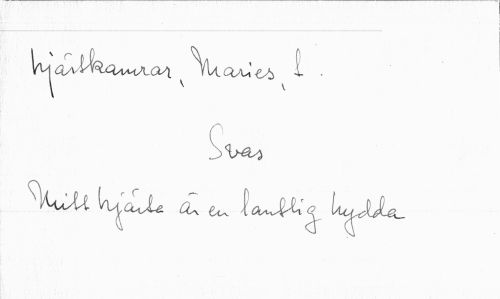 hjärtkamrar, Maries, I.
Svar
Mitt hjärta är en lantlig hydda